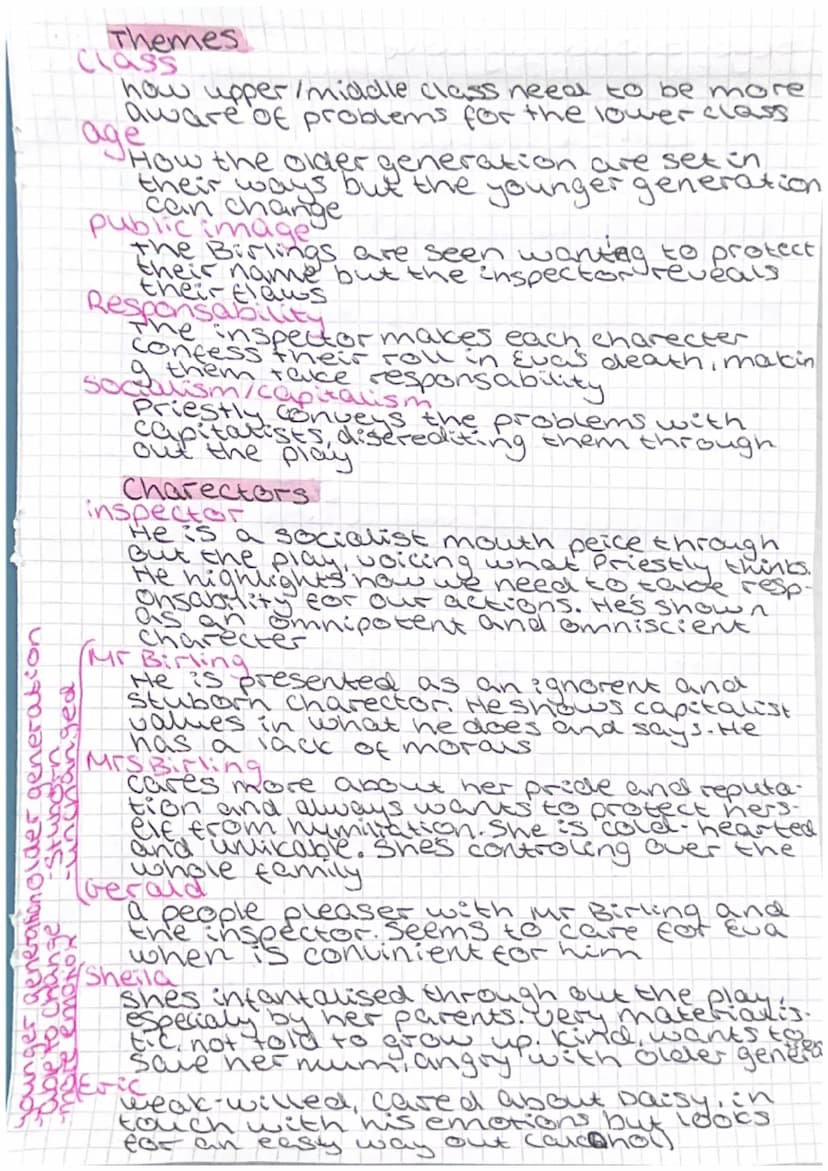 Themes
Class
how upper/middle class need to be more
aware of problems for the lower class
age
How the older generation are set in
their ways but the younger generation
can change
public image
the Birlings are seen wanting to protect
their name but the inspector reveals
their flaws
Responsability
The inspector makes each charecter
confess their roll in Eva's death, makin
g them take responsability
socialism/capitalism
Priestly conveys the problems with
capitatists, disrediting them through
out the play
Charectors
inspector
He is a socialist mouth peice through
out the play, voicing what Priestly thinks.
He highlights how we need to take resp-
onsability for our actions. He's shown
as an omnipotent and omniscient
charecter
Mr Birling
He is presented as an ignorent and
stuborn charector. He shows capitalist
values in what he does and says. He
has a lack of morals
Mrs Birling
cares more about her pride and reputa-
tion and always wants to protect hers-
elf from humiliation. She is cold-hearted
and unlikable. Shes controling over the
whole family
Gerald
a people pleaser with Mr Birling and
the inspector. Seems to care for Eva
when is convinient for him
Sheila
shes infantalised through out the play,
especialy by her parents. Very materialis-
tic, not told to grow up. Kind, wants to
save her mum, angry with older genera
Eric
weak-willed, cared about Daisy, in
touch with his emotions but looks
for an easy way out (alcohol)
older generation
-stuborn
-unchanged
younger generation
-able to change
-more emotion